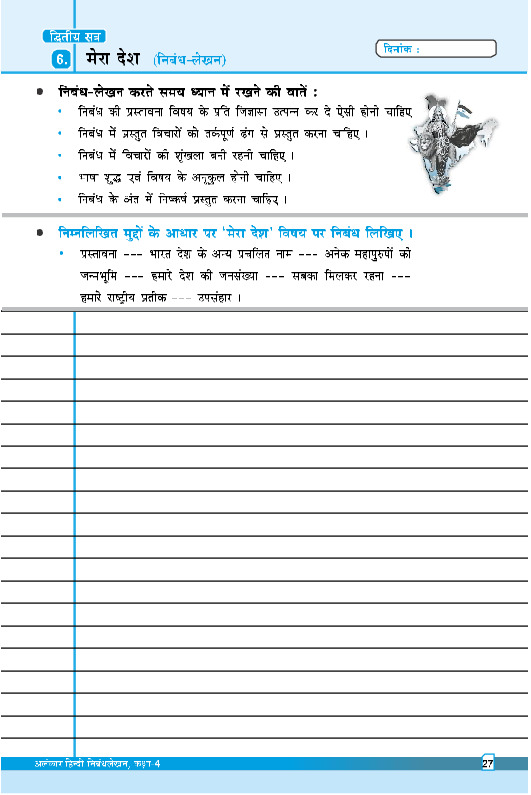 द्वितीय सत्र
6. मेरा देश (निबंध-लेखन)
दिनांक :
● निबंध-लेखन करते समय ध्यान में रखने की बातें :
• निबंध की प्रस्तावना विषय के प्रति जिज्ञासा उत्पन्न कर दे ऐसी होनी चाहिए
• निबंध में प्रस्तुत विचारों को तर्कपूर्ण ढंग से प्रस्तुत करना चाहिए ।
• निबंध में विचारों की शृंखला बनी रहनी चाहिए ।
• भाषा शुद्ध एवं विषय के अनुकूल होनी चाहिए ।
• निबंध के अंत में निष्कर्ष प्रस्तुत करना चाहिए ।
● निम्नलिखित मुद्दों के आधार पर 'मेरा देश' विषय पर निबंध लिखिए ।
• प्रस्तावना --- भारत देश के अन्य प्रचलित नाम --- अनेक महापुरुषों की
जन्मभूमि --- हमारे देश की जनसंख्या --- सबका मिलकर रहना ---
हमारे राष्ट्रीय प्रतीक --- उपसंहार ।
अलंकार हिन्दी निबंधलेखन, कक्षा-4
27